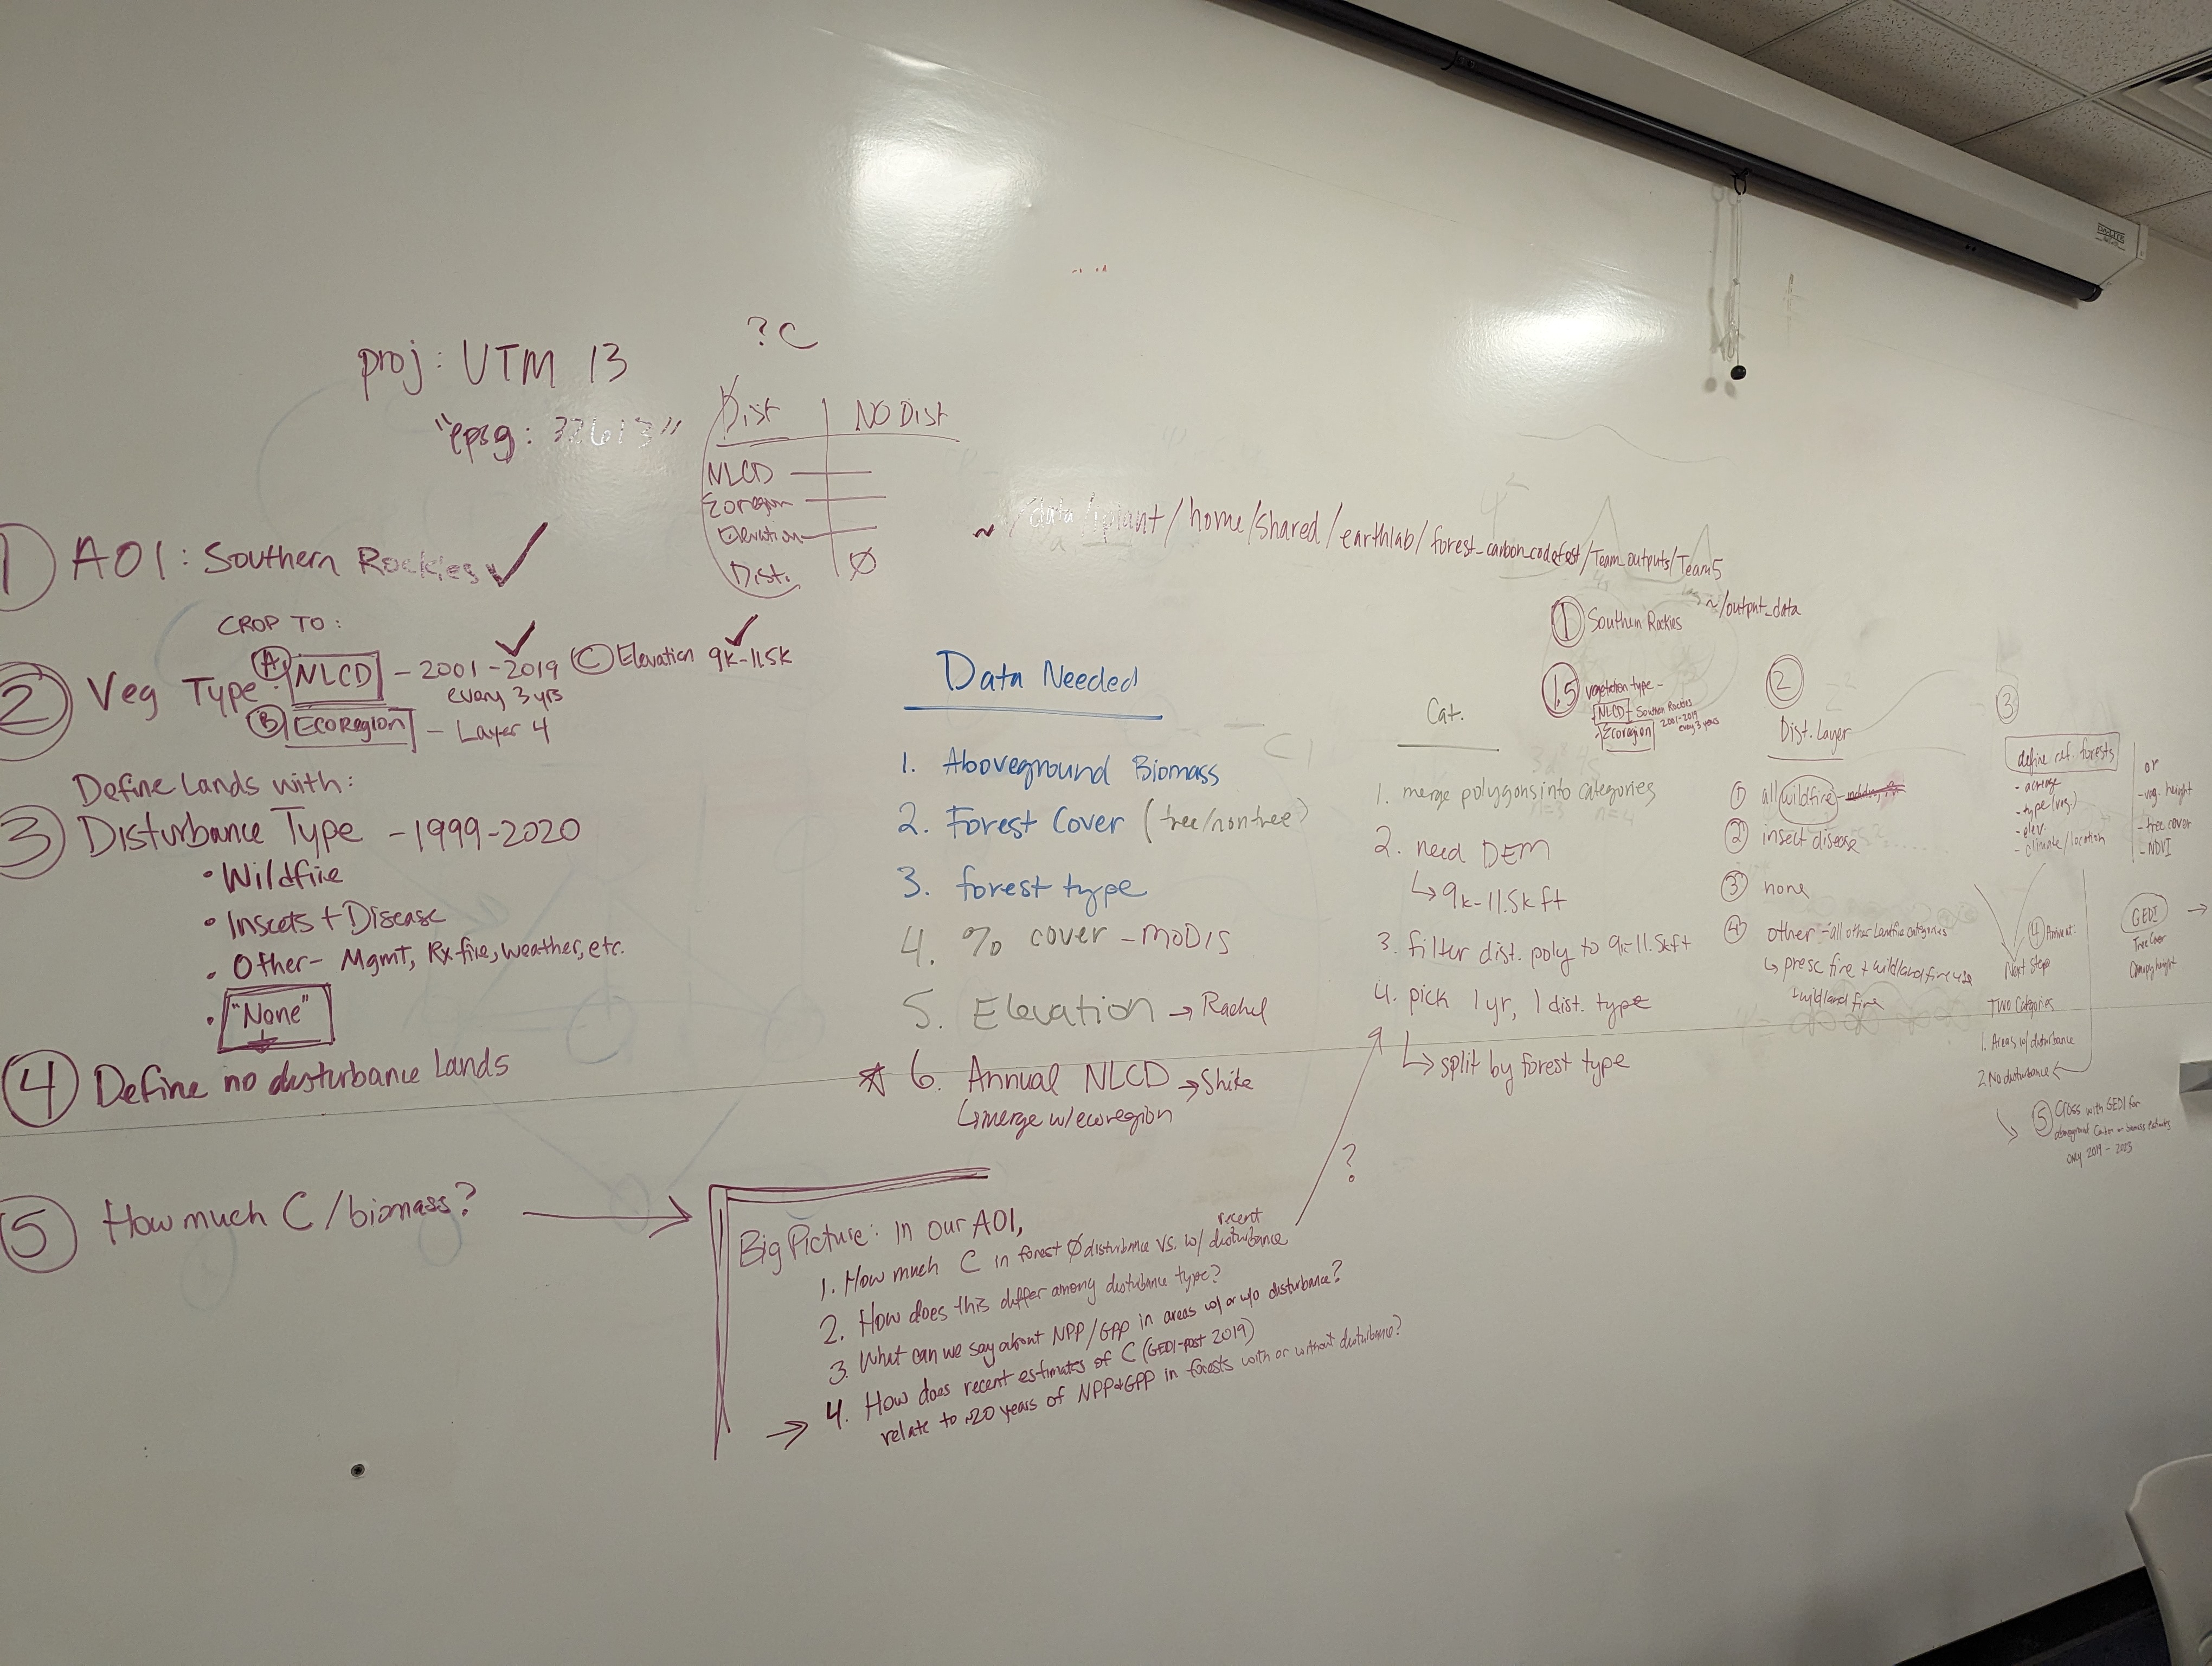 proj: UTM 13
"epsg: 32613"
? C
Dist | NO Dist
NLCD
Ecoregion
Elevation
Dist. Ø
~/data/iplant/home/shared/earthlab/forest_carbon_codefest/Team_outputs/Team5
~/output_data
1 AOI: Southern Rockies ✓
CROP TO:
2 Veg Type: A NLCD - 2001-2019 ✓
every 3 yrs
C Elevation 9k-11.5k ✓
B Ecoregion - Layer 4
Define Lands with:
3 Disturbance Type - 1999-2020
• Wildfire
• Insects + Disease
• Other - Mgmt, Rx fire, weather, etc.
• "None"
4 Define no disturbance Lands
5 How much C/biomass? →
Data Needed
1. Aboveground Biomass
2. Forest Cover (tree/nontree)
3. forest type
4. % cover - MODIS
5. Elevation → Rachel
6. Annual NLCD → Shike
↳ merge w/ ecoregion
Big Picture: In our AOI,
1. How much C in forest Ø disturbance vs. w/ recent disturbance
2. How does this differ among disturbance type?
3. What can we say about NPP/GPP in areas w/ or w/o disturbance?
→ 4. How does recent estimates of C (GEDI-post 2019)
relate to ~20 years of NPP+GPP in forests with or without disturbance?
?
Cat.
1. merge polygons into categories
2. need DEM
↳ 9k-11.5k ft
3. filter dist. poly to 9k-11.5kft
4. pick 1 yr, 1 dist. type
↳ split by forest type
1 Southern Rockies
1.5 vegetation type -
NLCD - Southern Rockies
2001-2019
every 3 years
Ecoregion
2
Dist. Layer
1 all wildfire -
2 insect disease
3 none
4 other - all other Landfire categories
↳ presc fire + wildland fire use
+ wildland fire
3
define ref. forests
- acreage
- type (veg.)
- elev.
- climate/location
or
- veg. height
- tree cover
- NDVI
4
Next Steps
Two Categories
1. Areas w/ disturbance
2. No disturbance
GEDI →
Tree Cover
Canopy height
5 Cross with GEDI for
aboveground Carbon or biomass estimates
only 2019 - 2023